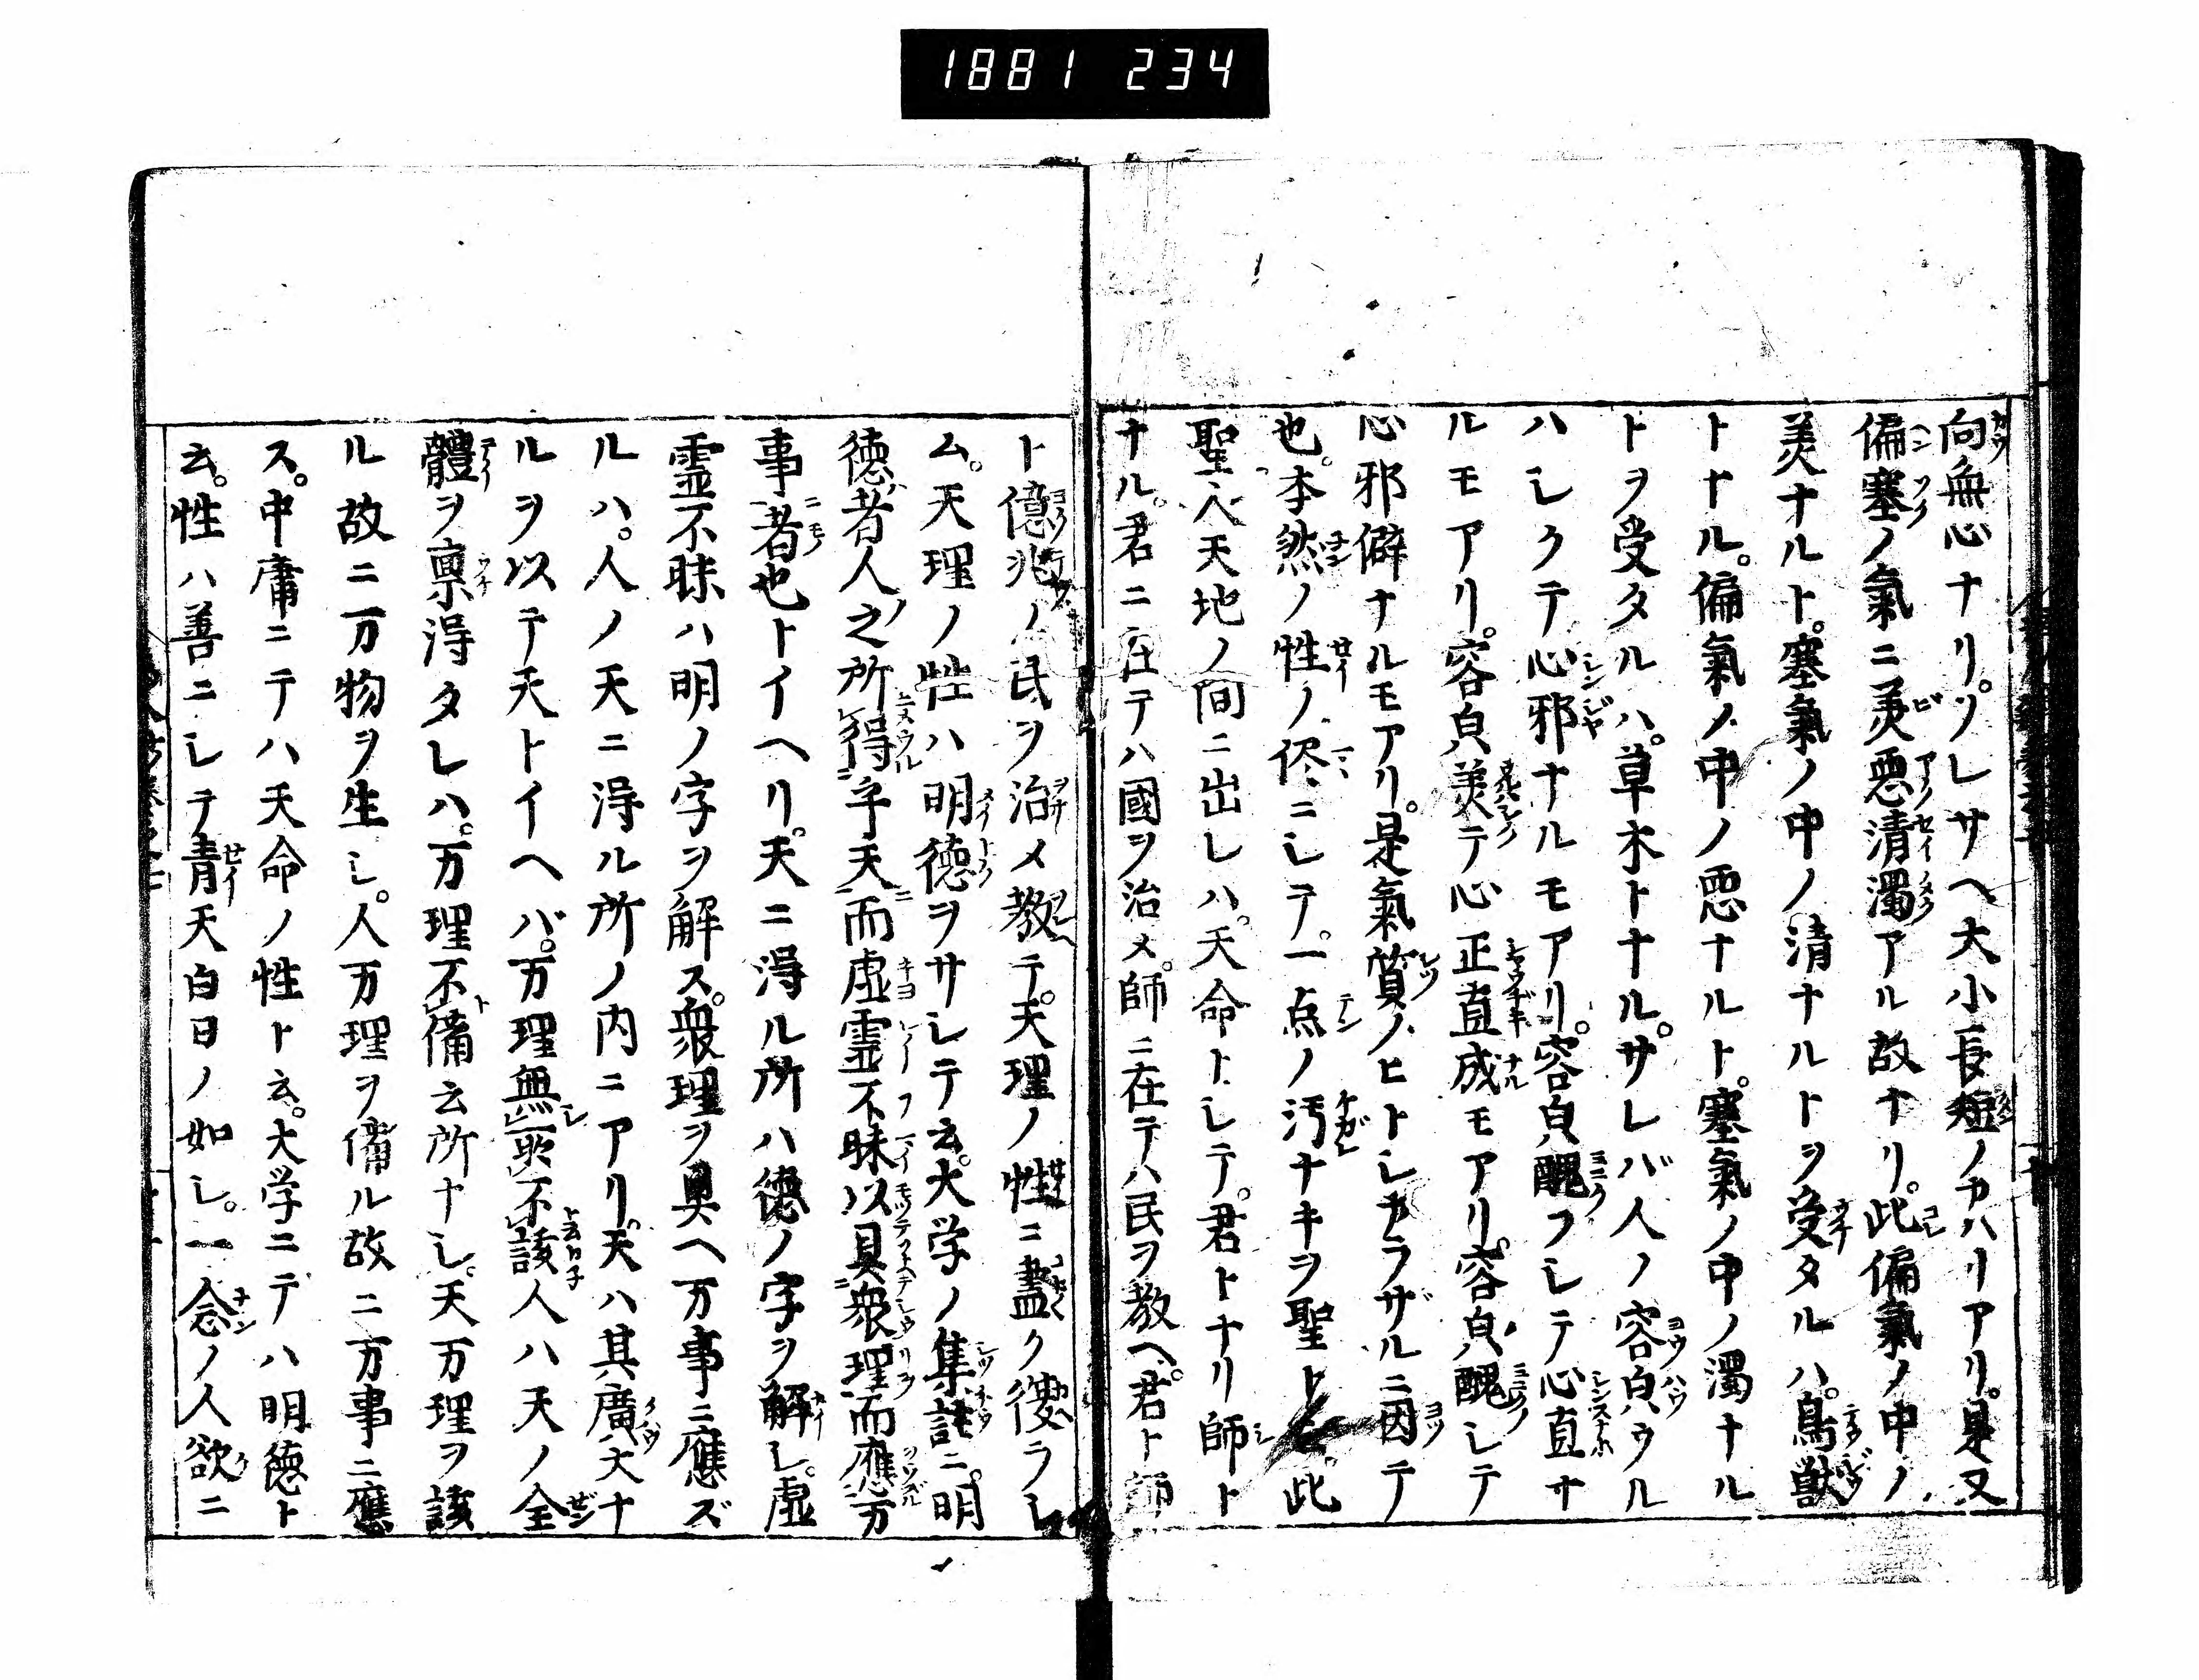 1881 234
向無心ナリ。ソレサヘ大小長短ノカハリアリ。是又
偏塞ノ氣ニ美悪清濁アル故ナリ。此偏氣ノ中ノ
美ナルト。塞氣ノ中ノ清ナルトヲ受タルハ。鳥獣
トナル。偏氣ノ中ノ悪ナルト。塞氣ノ中ノ濁ナル
トヲ受タルハ。草木トナル。サレバ人ノ容皃ウル
ハシクテ心邪ナルモアリ。容皃醜フシテ心直ナ
ルモアリ。容皃美テ心正直成モアリ。容皃醜シテ
心邪僻ナルモアリ。是氣質ノヒトシカラザルニ因テ
也。本然ノ性ノ侭ニシテ。一点ノ汚ナキヲ聖ト云。此
聖人天地ノ間ニ出レハ。天命トシテ。君トナリ師ト
ナル。君ニ在テハ國ヲ治メ。師ニ在テハ民ヲ教ヘ。君ト師
ト億兆ノ民ヲ治メ教テ。天理ノ性ニ盡ク復ラシ
ム。天理ノ性ハ明德ヲサシテ云。大学ノ集註ニ。明
德者人之所得乎天而虚霊不昧以具衆理而應万
事者也トイヘリ。天ニ得ル所ハ德ノ字ヲ解シ。虚
霊不昧ハ明ノ字ヲ解ス。衆理ヲ具ヘ万事ニ應ズ
ルハ。人ノ天ニ得ル所ノ内ニアリ。天ハ其廣大ナ
ルヲ以テ天トイヘバ。万理無
不該人ハ天ノ全
體ヲ禀得タレハ。万理不備云所ナシ。天万理ヲ該
ル故ニ万物ヲ生シ。人万理ヲ備ル故ニ万事ニ應
ス。中庸ニテハ天命ノ性ト云。大学ニテハ明德ト
云。性ハ善ニシテ青天白日ノ如シ。一念ノ人欲ニ